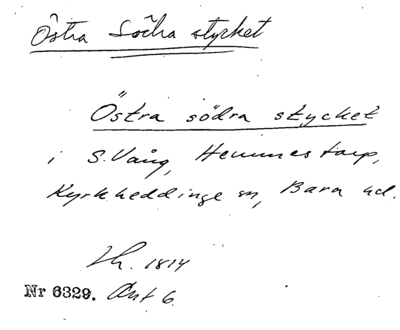 Östra Södra stycket
Östra södra stycket
i S. Vång, Hemmestorp,
Kyrkheddinge sn, Bara hd.
Lh. 1814
Nr 6329. Akt 6.